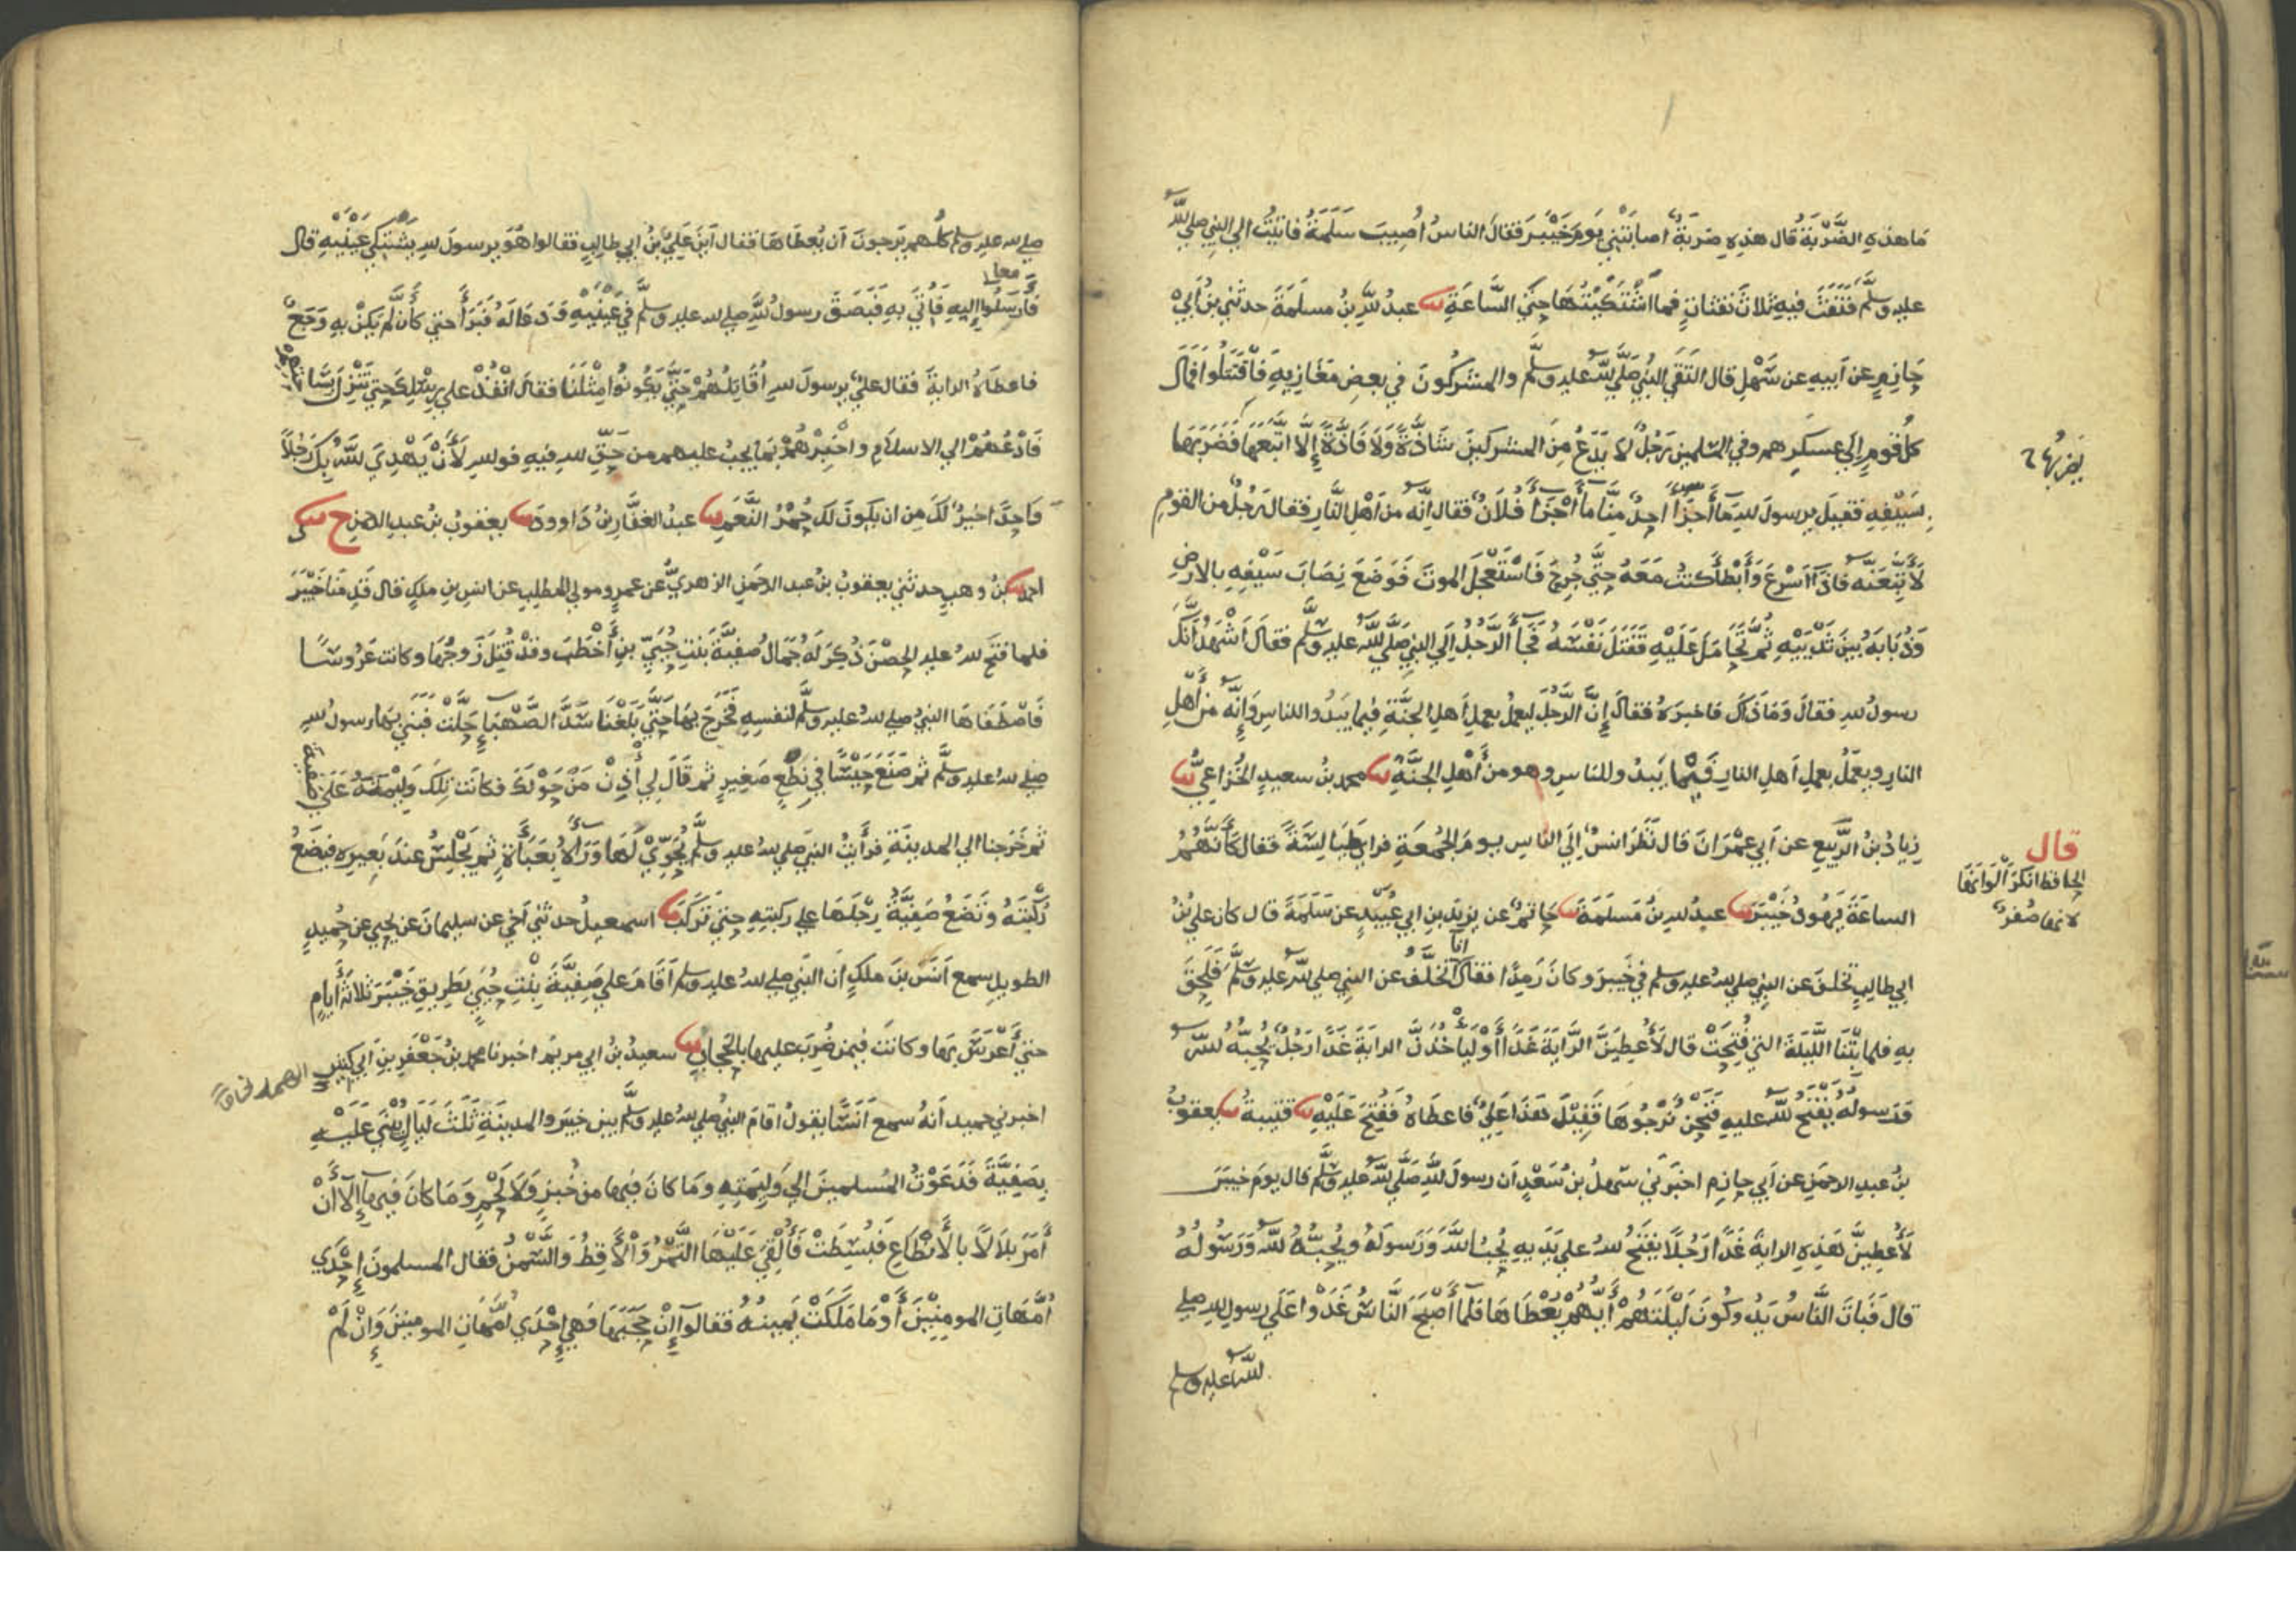 ما هذه الضَّرْبَةُ قال هذه ضربةٌ اصابَتْني يومَ خَيْبَرَ فقالَ الناسُ اُصِيبَ سَلَمَةُ فاتيتُ الي النبي صلي الله
عليه وسلَّم فَنَفَثَ فيه ثلاثَ نفثاتٍ فما اشْتَكَيْتُهَا حتي السَّاعَةِ عبدُ الله بنُ مسلَمَةَ حدثني بنُ ابي
حازمٍ عن اَبيه عن سَهْلٍ قال التَقَي النبيُ صَلَّي اللهُ عليه وسلَّم والمشركُونَ في بعضِ مَغَازِيهِ فَاقْتَتَلُوا فَمَالَ
كلُّ قومٍ اِلَي عسكرِهم وفي المسلمين رَجُلٌ لا يَدَعُ مِنَ المشركينَ شَاذَّةً وَلَا فَاذَّةً إِلَّا اتَّبَعَهَا فَضَرَبَهَا
يَضربُها
بِسَيْفِهِ فقيلَ يرسولَ للهِ مَا أَجْزَأَ احدٌ مِنَّا مَا أَجْزَأَ فُلَانٌ فقال اِنَّه من اَهْلِ النَّارِ فقالَ رَجُلٌ من القومِ
لَأَتَّبِعَنَّه فَاذَآ اَسْرَعَ وَأَبْطَأَ كنتُ مَعَهُ حتَّي جُرِحَ فَاسْتَعْجَلَ الموتَ فَوَضَعَ نِصَابَ سَيْفِهِ بالارضِ
وَذُبَابَهُ بينَ ثَدْيَيْهِ ثُمَّ تَحَامَلَ عَلَيْهِ فَقَتَلَ نَفْسَهُ فَجَأَ الرَّجُلُ اِلَي النبيِ صَلَّي اللهُ عليه وسلَّم فقالَ اَشْهَدُ اَنَّكَ
رسولُ للهِ فقالَ وَمَا ذَاكَ فاخبرَهُ فقالَ إِنَّ الرَّجُلَ ليعملُ بعملِ اَهلِ الجنَّةِ فيما يَبْدُوا للناسِ وَاِنَّه من أَهْلِ
النارِ ويعمَلُ بعملِ اَهلِ النارِ فَيْمَا يَبدُو للناسِ وهو من أَهْلِ الجنَّةِ محمدُ بنُ سعيدٍ الخُزَاعِيُّ
زِيادُ بنُ الرَّبيعِ عن اَبي عِمْرَانَ قال نَظَرَ انسٌ اِلَي الناسِ يومَ الجُمُعَةِ فراي طَيَالِسَةً فقال كَأَنَّهُمُ
قال
الحافظ انكرَ اَلْوَانَهَا
لانها صُفرٌ
الساعَةَ يَهُودُ خَيْبَرَ عبدُ للهِ بنُ مَسلمَةَ حَاتمٌ عن يزيدَ بنِ ابي عُبَيْدٍ عن سَلَمَةَ قال كان عليُ بنُ
ابي طالبٍ تخلفَ عن النبيِ صلي للهُ عليه وسلم في خَيبرَ وكانَ رَمِدًا فقالَ انَا اَتخلَّفُ عن النبيِ صلي للهُ عليه وسلَّم فَلَحِقَ
بِهِ فلما بِتْنَا اللَّيلَةَ التي فُتِحَتْ قال لَأُعْطِيَنَّ الرَّايَةَ غَدًا أَوْ لَيَأْخُذَنَّ الرايَةَ غَدًا رَجُلٌ يُحِبُّهُ للهُ
وَرسولُهُ يُفْتَحُ للهُ عليه فَنَحْنُ نَرْجُوهَا فَقِيْلَ هَذَا عَلِيٌّ فاعطَاهُ فَفُتِحَ عَلَيْهِ قتيبةُ يعقوبُ
بنُ عبدِ الرحمنِ عن اَبي حازمٍ اخبَرَني سَهلُ بنُ سَعْدٍ اَن رسولَ للَّهِ صَلَّي للهُ عليه وسلَّم قال يومَ خيبرَ
لَأُعطِيَنَّ هَذِهِ الرايةَ غَدًا رَجُلًا يَفتَحُ للهُ علي يَدَيهِ يُحِبُ اللَّهَ وَرَسولَهُ ويُحِبُّهُ للهُ وَرَسُولُهُ
قالَ فَبَاتَ النَّاسُ يَدُوكُونَ لَيْلَتَهُمْ أَيُّهُمْ يُعْطَاهَا فَلَمَّا أَصْبَحَ النَّاسُ غَدَوْا عَلَي رسولِ للهِ صلي
للهُ عليه وسلم
صلي لله عليه وسلم كلُّهم يَرجونَ اَن يُعطَاهَا فقال اَينَ عَلِيُّ بنُ ابي طالِبٍ فقالوا هُوَ يرسولَ للهِ يشتكي عَيْنَيْهِ قال
فَأَرسِلُوا اِليهِ فَأُتِيَ بِهِ فَبَصَقَ رسولُ للَّهِ صلي لله عليه وسلَّم في عَيْنَيْهِ وَدَعَا لَهُ فَبَرَأَ حتي كأَن لَّم يَكُنْ بِهِ وَجَعٌ
معا
فاعطَاهُ الرايةَ فقال عليٌّ يرسولَ للهِ اُقَاتِلُهُمْ حَتَّي يَكُونُوا مِثْلَنَا فقالَ انْفُذْ علي رِسْلِكَ حتي تَنْزِلَ بسَاحَتِهِمْ
فَادْعُهُمْ الي الاسلَامِ واَخْبِرْهُمْ بمَا يجبُ عليهم من حَقِّ للهِ فيهِ فوللهِ لَأَنْ يَهْدِيَ للهُ بِكَ رَجُلًا
وَاحِدًا خيرٌ لكَ مِن ان يكونَ لكَ حُمْرُ النَّعَمِ عبدُ الغفَّارِ بنُ دَاوودَ يعقوبُ بنُ عبدِ الرحمنِ ح
احمدُ بنُ وهبٍ حدثَني يعقوبُ بنُ عبد الرحمنِ الزهريُّ عن عمرٍو مولي المطلبِ عن انسِ بنِ ملكٍ قال قَدِمنَا خَيْبَرَ
فلما فتحَ للهُ عليه الحِصْنَ ذُكِرَ لَهُ جَمَالُ صَفِيَّةَ بنتِ حُيَيِّ بنِ أَخْطَبَ وقدْ قُتِلَ زَوجُهَا وكانت عَرُوسًا
فَاصْطَفَاهَا النبيُ صلي للهُ عليه وسلَّم لنفسِهِ فَخَرَجَ بِهَا حَتَّي بَلَغْنَا سَدَّ الصَّهْبَاءِ حَلَّتْ فَبَنَي بِهَا رسولُ للهِ
صلي للهُ عليه وسلَّم ثم صَنَعَ حَيْسًا في نِطَعٍ صَغيرٍ ثم قالَ لِي أذِنْ مَنْ حَوْلَكَ فكانَت تِلكَ وَليمَتَهُ عَلَي صَفِيَّةَ
ثم خَرَجنا الي المدينَةِ فرأَيتُ النبيَ صلي للهُ عليه وسلَّم يُحَوِّي لَهَا وَرَاءَهُ بِعَبَاءَةٍ ثم يَجْلِسُ عندَ بَعِيرِه فيضَعُ
رُكْبَتَهُ وتَضَعُ صَفِيَّةُ رِجْلَهَا علي ركبتِهِ حتي تَركَبَ اسمعيلُ حدثني اَخي عن سليمانَ عن يحيي عن حُميدٍ
الطويلِ سمع اَنَسَ بنَ ملكٍ اَن النبيَ صلي للهُ عليه وسلم اَقَامَ علي صَفِيَّةَ بِنْتِ حُيَيٍ بطريقِ خَيْبَرَ ثلاثةَ أَيامٍ
حتي أَعْرَسَ بِهَا وكانَت فيمن ضُرِبَ عليها بالحجابِ سعيدُ بنُ ابي مريمَ اخبرنا محمدُ بنُ جَعْفَرِ بنِ اَبي كثيرٍ
اخبرني حميد اَنهُ سمع اَنَسًا يقولُ اقامَ النبيُ صلي للهُ عليه وسلَّم بينَ خيبرَ والمدينَةِ ثَلَثَ لَيَالٍ يُبْنَي عَلَيْهِ
بِصَفِيَّةَ فَدَعَوْتُ المُسلمينَ الي وَلِيمَتِهِ ومَا كانَ فيها من خُبزٍ وَلَا لَحْمٍ وَمَا كانَ فيها إِلَّا أَنْ
أَمَرَ بِلَالًا بالأَنْطَاعِ فَبُسِطَتْ فَأُلْقِيَ عَلَيْهَا التَّمْرُ وَالْأَقِطُ وَالسَّمْنُ فقال المسلمونَ إِحْدَي
أُمَّهَاتِ المومنِيْنَ أَوْ مَا مَلَكَتْ يَمينُهُ فقالوا إِنْ حَجَبَهَا فَهِي إِحْدَي أُمَّهَاتِ المومنينَ وَإِنْ لَمْ